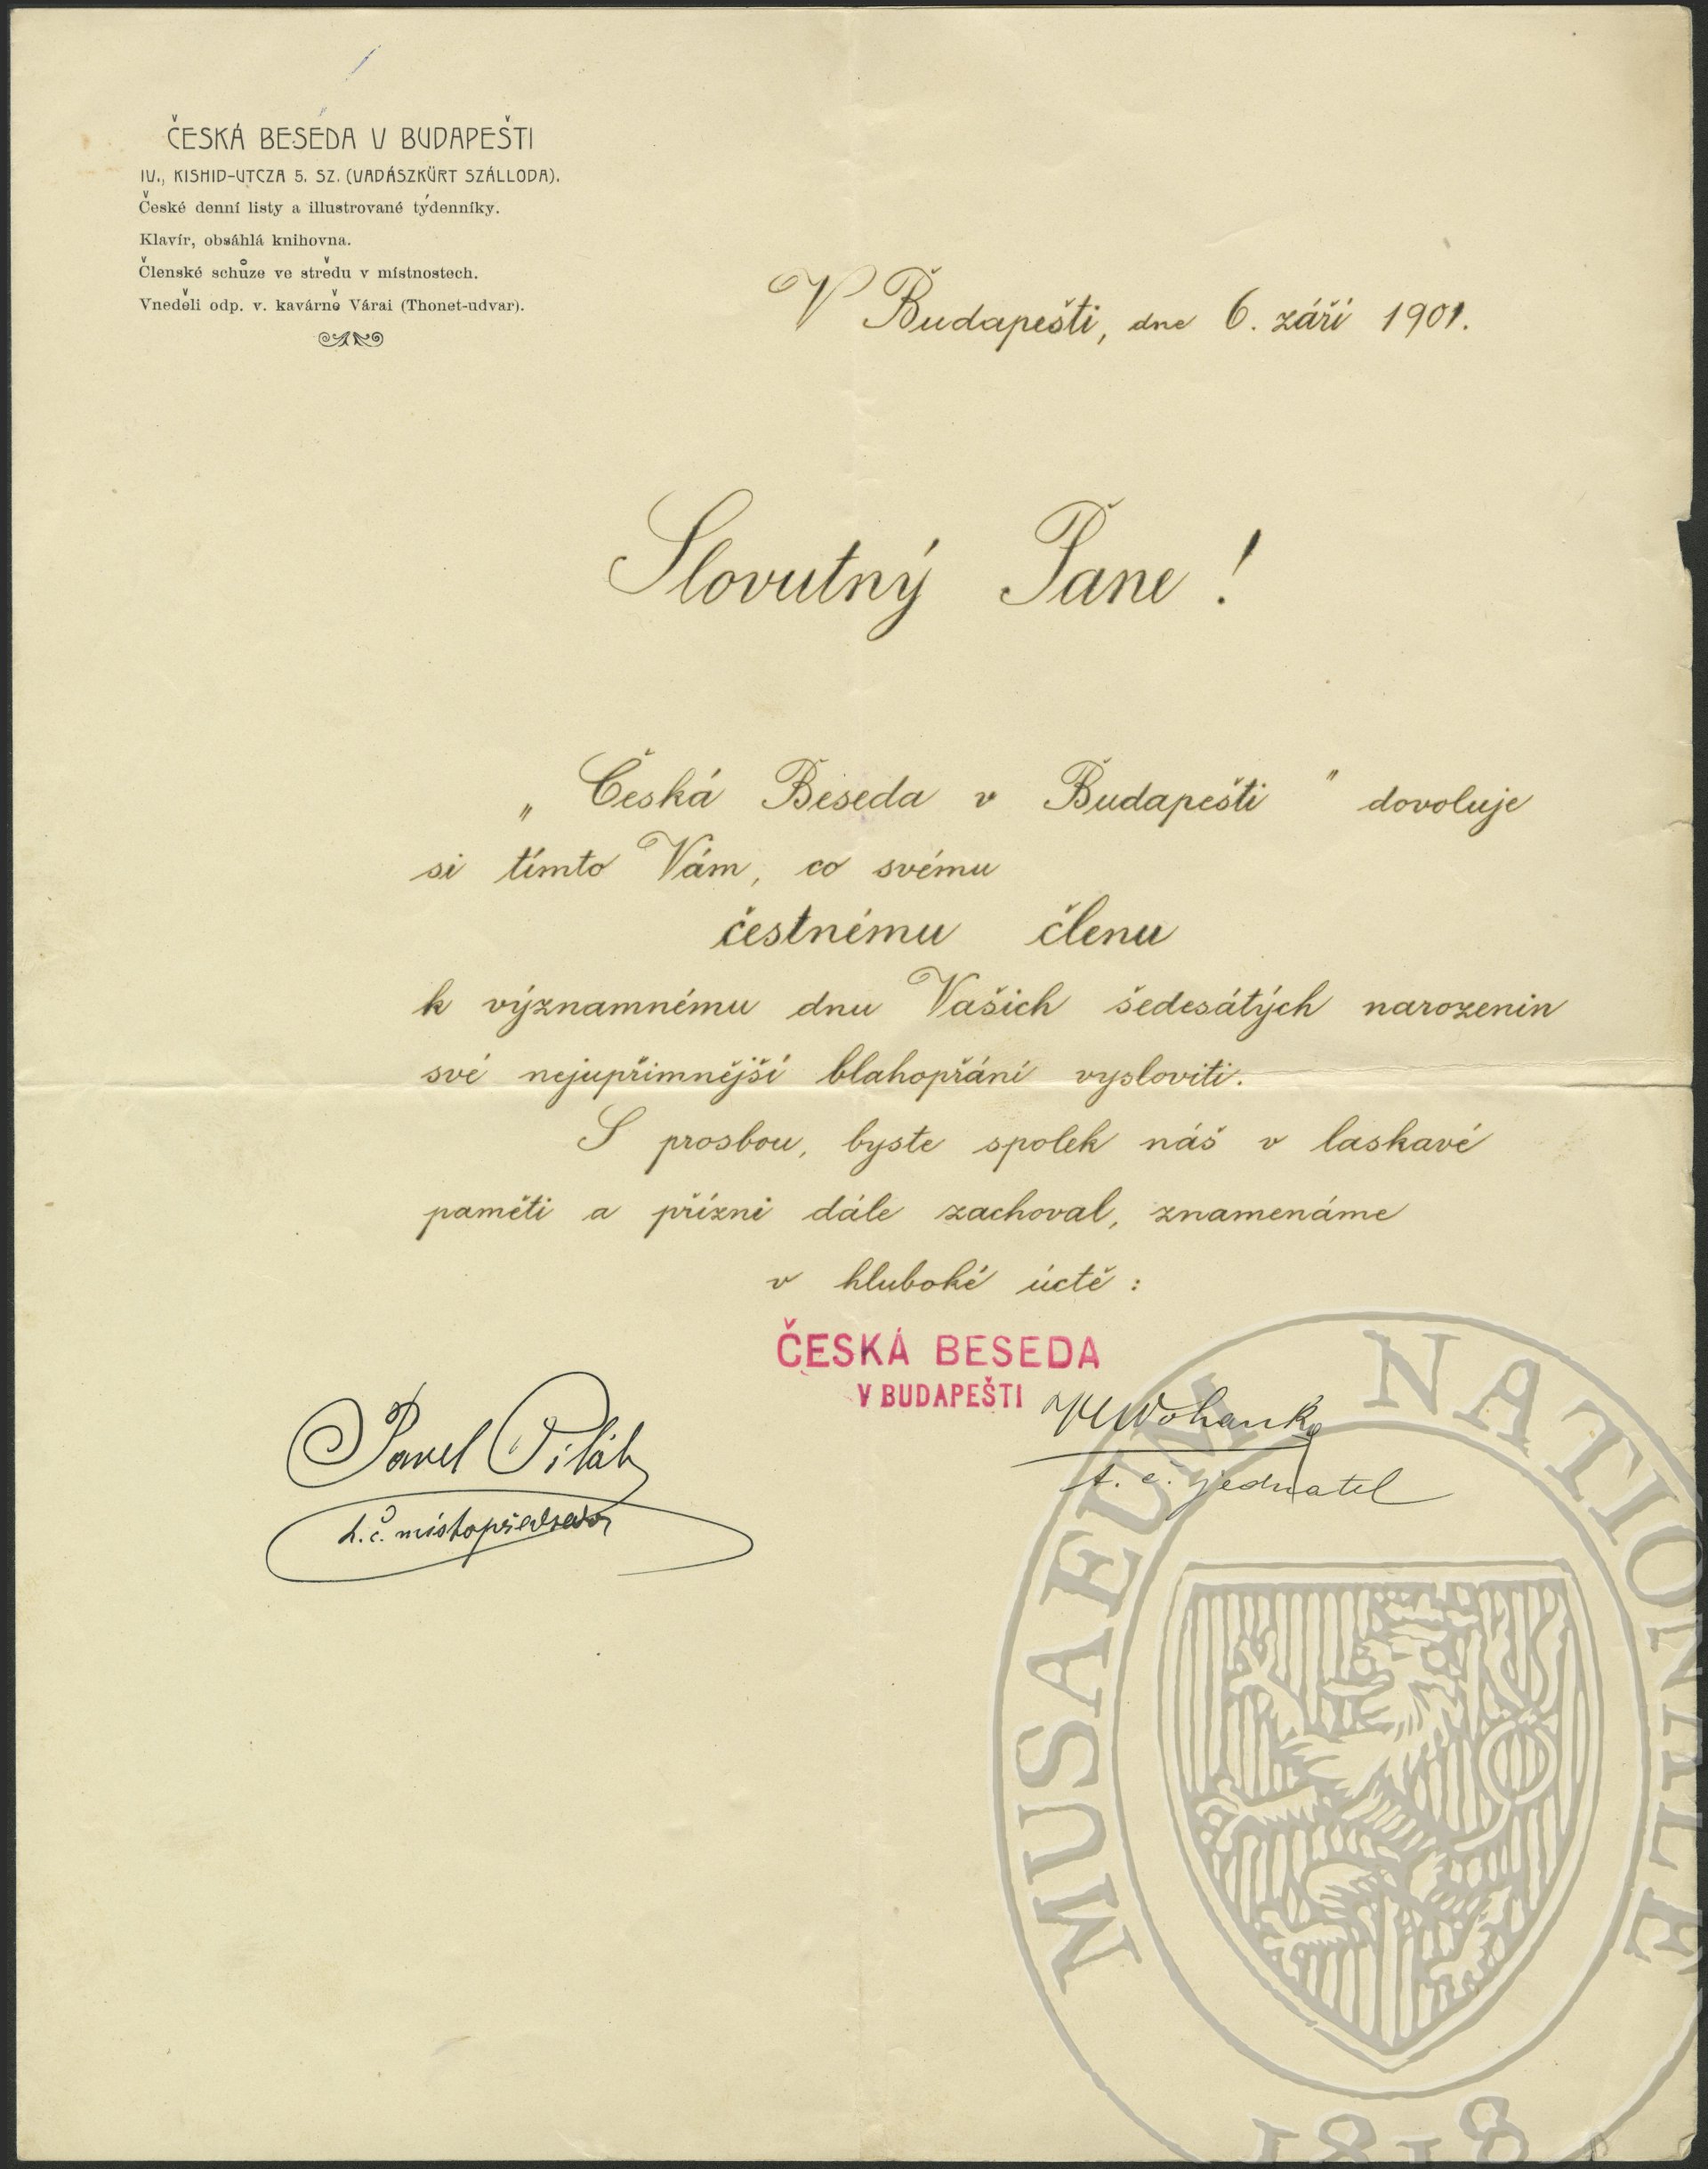 ČESKÁ BESEDA V BUDAPEŠTI
IV., KISHID-UTCZA 5. SZ. (VADÁSZKÜRT SZÁLLODA).
České denní listy a illustrované týdenníky.
Klavír, obsáhlá knihovna.
Členské schůze ve středu v místnostech.
Vneděli odp. v. kavárně Várai (Thonet-udvar).
V Budapešti, dne 6. září 1901.
Slovutný Pane!
„Česká Beseda v Budapešti" dovoluje
si tímto Vám, co svému
čestnému členu
k významnému dnu Vašich šedesátých narozenin
své nejupřimnější blahopřání vysloviti.
S prosbou, byste spolek náš v laskavé
paměti a přízni dále zachoval, znamenáme
v hluboké úctě:
ČESKÁ BESEDA
V BUDAPEŠTI
Wohanka
t. č. jednatel
Pavel Pilát
t. č. místopředseda
MUSAEUM NATIONALE
1818